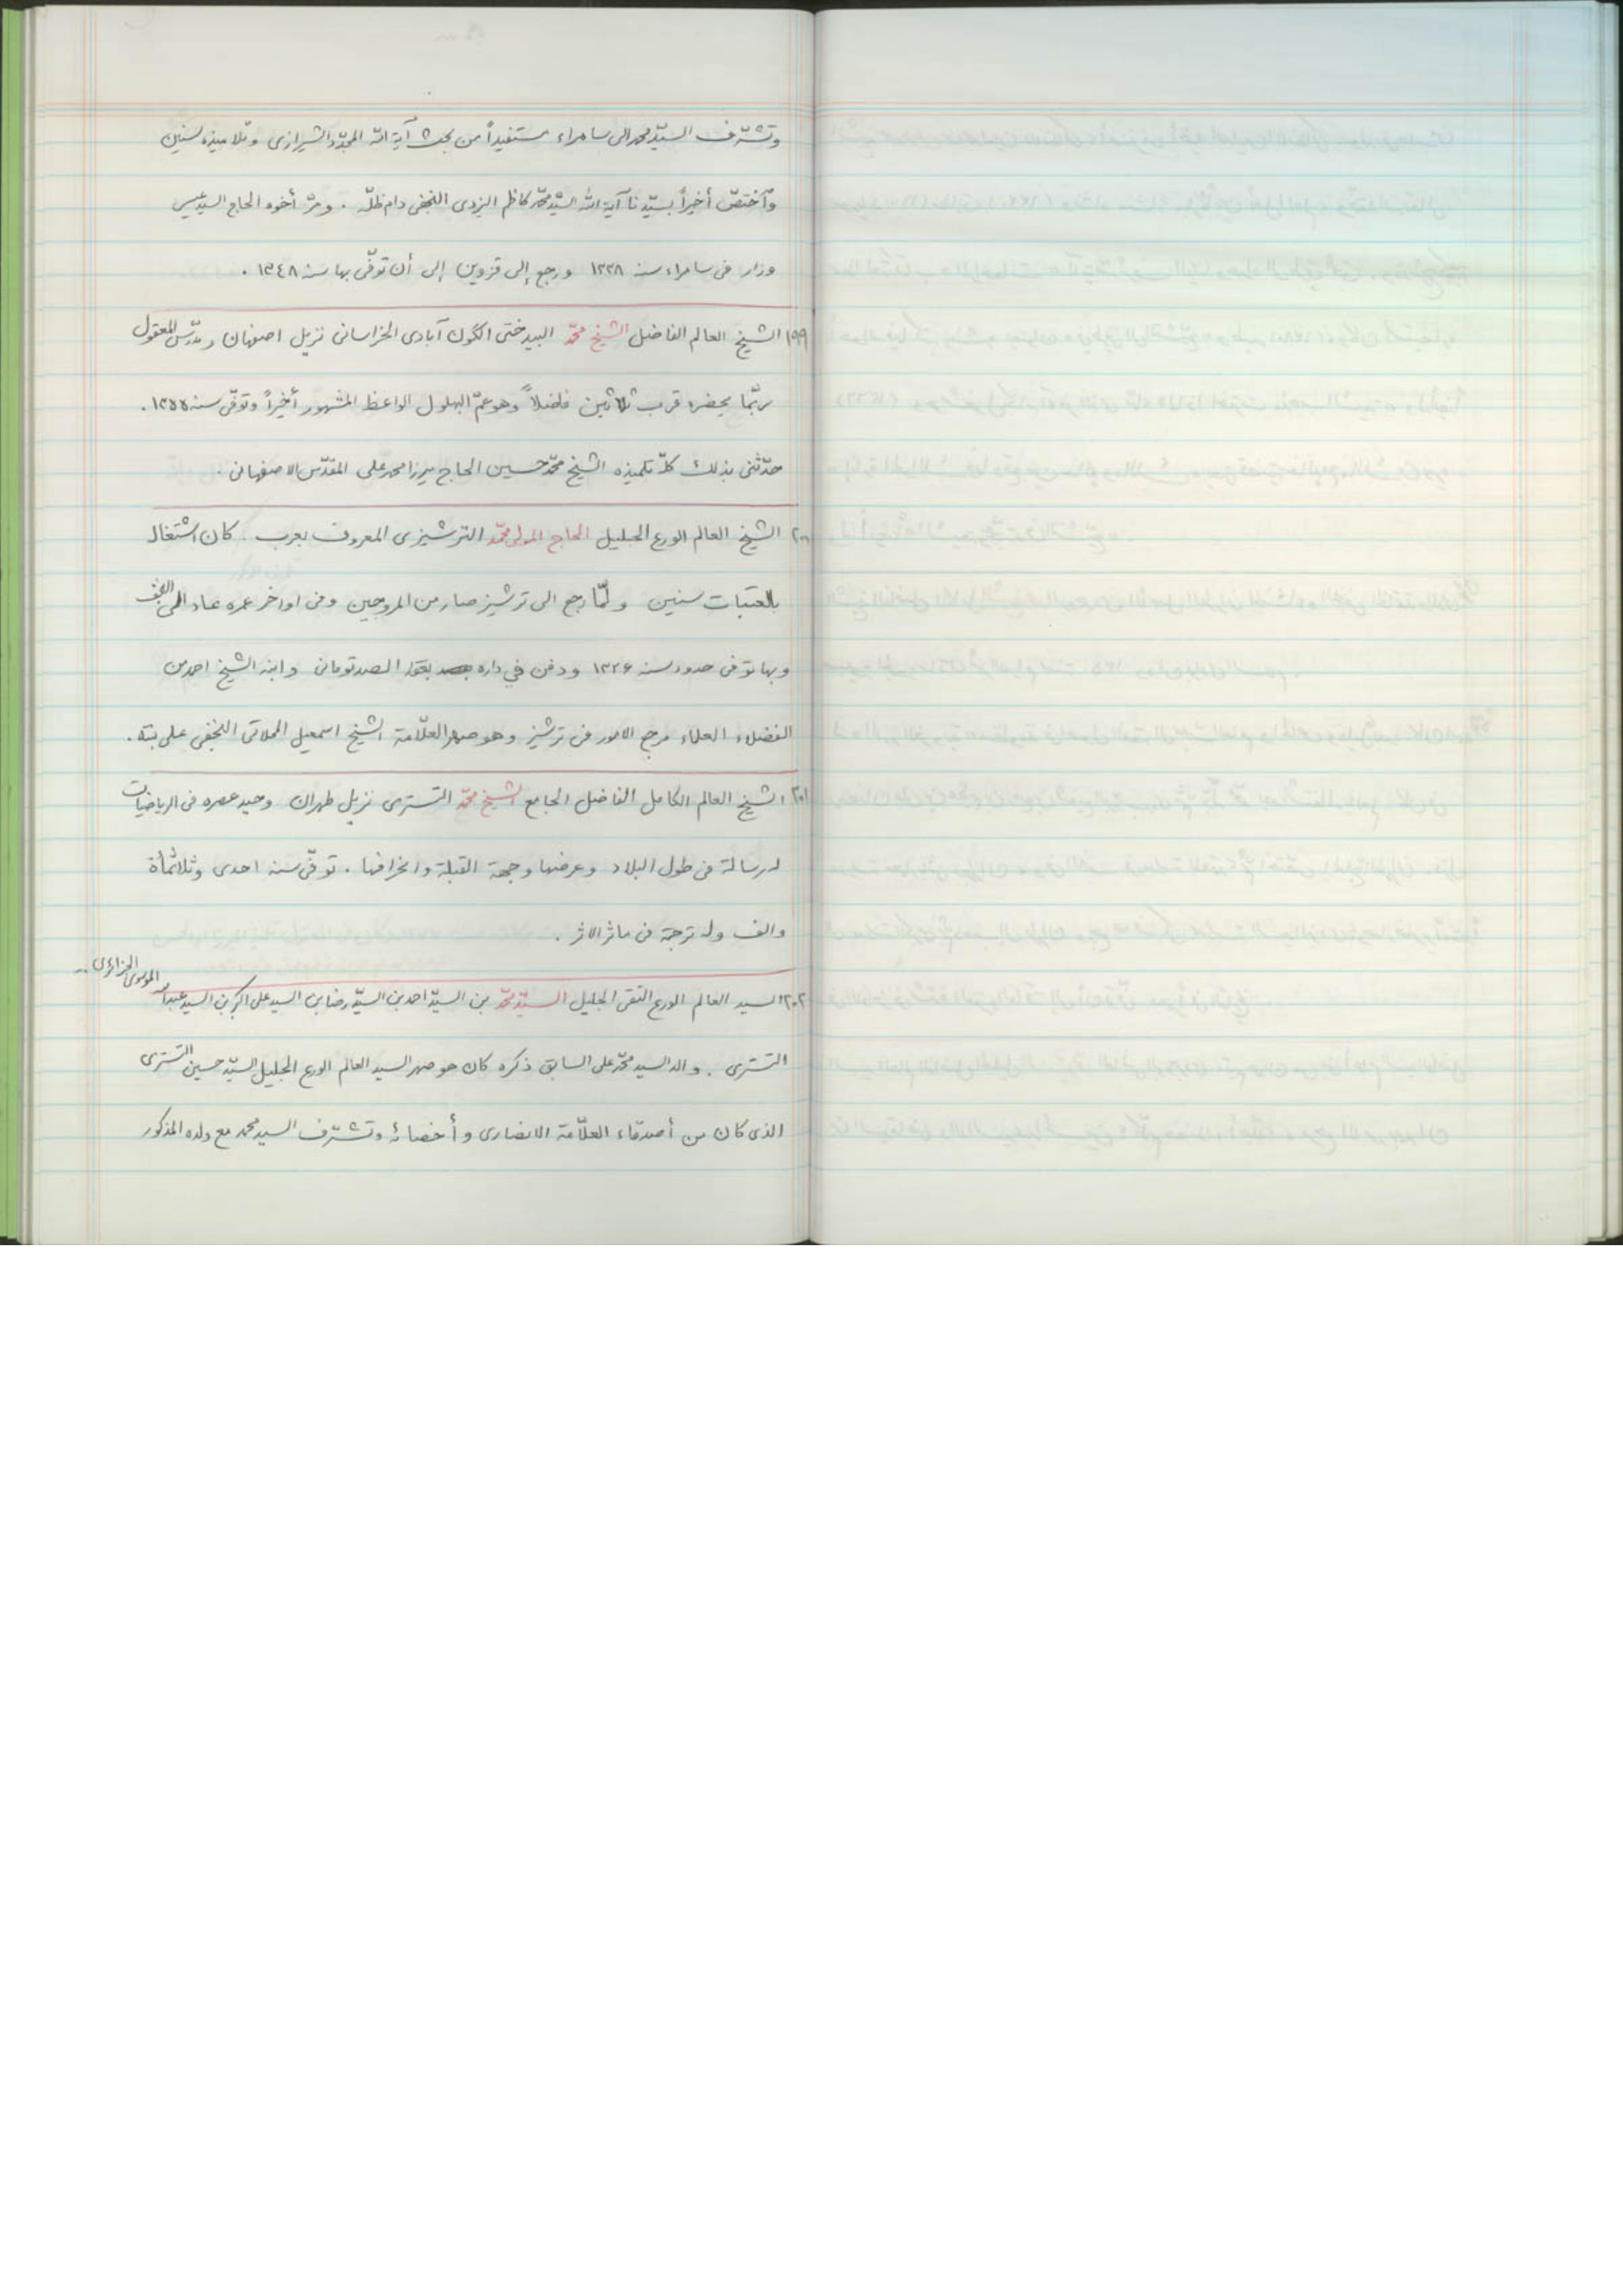 وتشرّف السيّد محمد الى سامراء مستفيداً من بحث آية الله المجدّد الشيرازى وتلاميذه سنين
وٱختصّ أخيراً بسيّدنا آية الله السيّد محمّد كاظم اليزدى النجفى دام ظلّه . ومرّ أخوه الحاج السيد عيسى
وزار فى سامراء سنه ١٣٣٨ ورجع إلى قزوين إلى أن توفّى بها سنه ١٣٤٨ .
١٩٩ الشيخ العالم الفاضل الشيخ محمّد البيدختى الگون آبادى الخراسانى نزيل اصفهان ومدرّس المعقول
ربّما يحضره قرب ثلاثين فاضلاً وهو عمّ البهلول الواعظ المشهور أخيراً وتوفّى سنه ١٣٥٥ .
حدّثنى بذلك كلّه تلميذه الشيخ محمّد حسين الحاج ميرزا محمد على المقدّس الاصفهانى .
٢٠٠ الشيخ العالم الورع الجليل الحاج المولى محمّد الترشيزى المعروف بعرب . كان اشتغاله
بالعتبات سنين ولمّا رجع الى ترشيز صار من المروجين وفى اواخر عمره عاد الى النجف
وبها توفى حدود سنه ١٣٢۶ ودفن في داره بعقد الصد تومانى وابنه الشيخ احمد من
الفضلاء العلماء مرجع الامور فى ترشيز وهو صهر العلّامة الشيخ اسمعيل المحلاتى النجفى على بنته .
٢٠١ الشيخ العالم الكامل الفاضل الجامع الشيخ محمّد التسترى نزيل طهران وحيد عصره فى الرياضيات
له رسالة فى طول البلاد وعرضها وجهة القبلة وانحرافها . توفّى سنه احدى وثلاثمأة
والف وله ترجمة فى ماثر الاثر .
٢٠٢ السيد العالم الورع التقى الجليل السيّد محمّد بن السيّد احمد بن السيّد رضا بن السيد على اكبر بن السيد عبدالله الموسوى الجزائرى
التسترى . والد السيد محمّد على السابق ذكره كان هو صهر السيد العالم الورع الجليل السيّد حسين التسترى
الذى كان من أصدقاء العلّامة الانصارى وأخصائه وتشرّف السيد محمد مع ولده المذكور